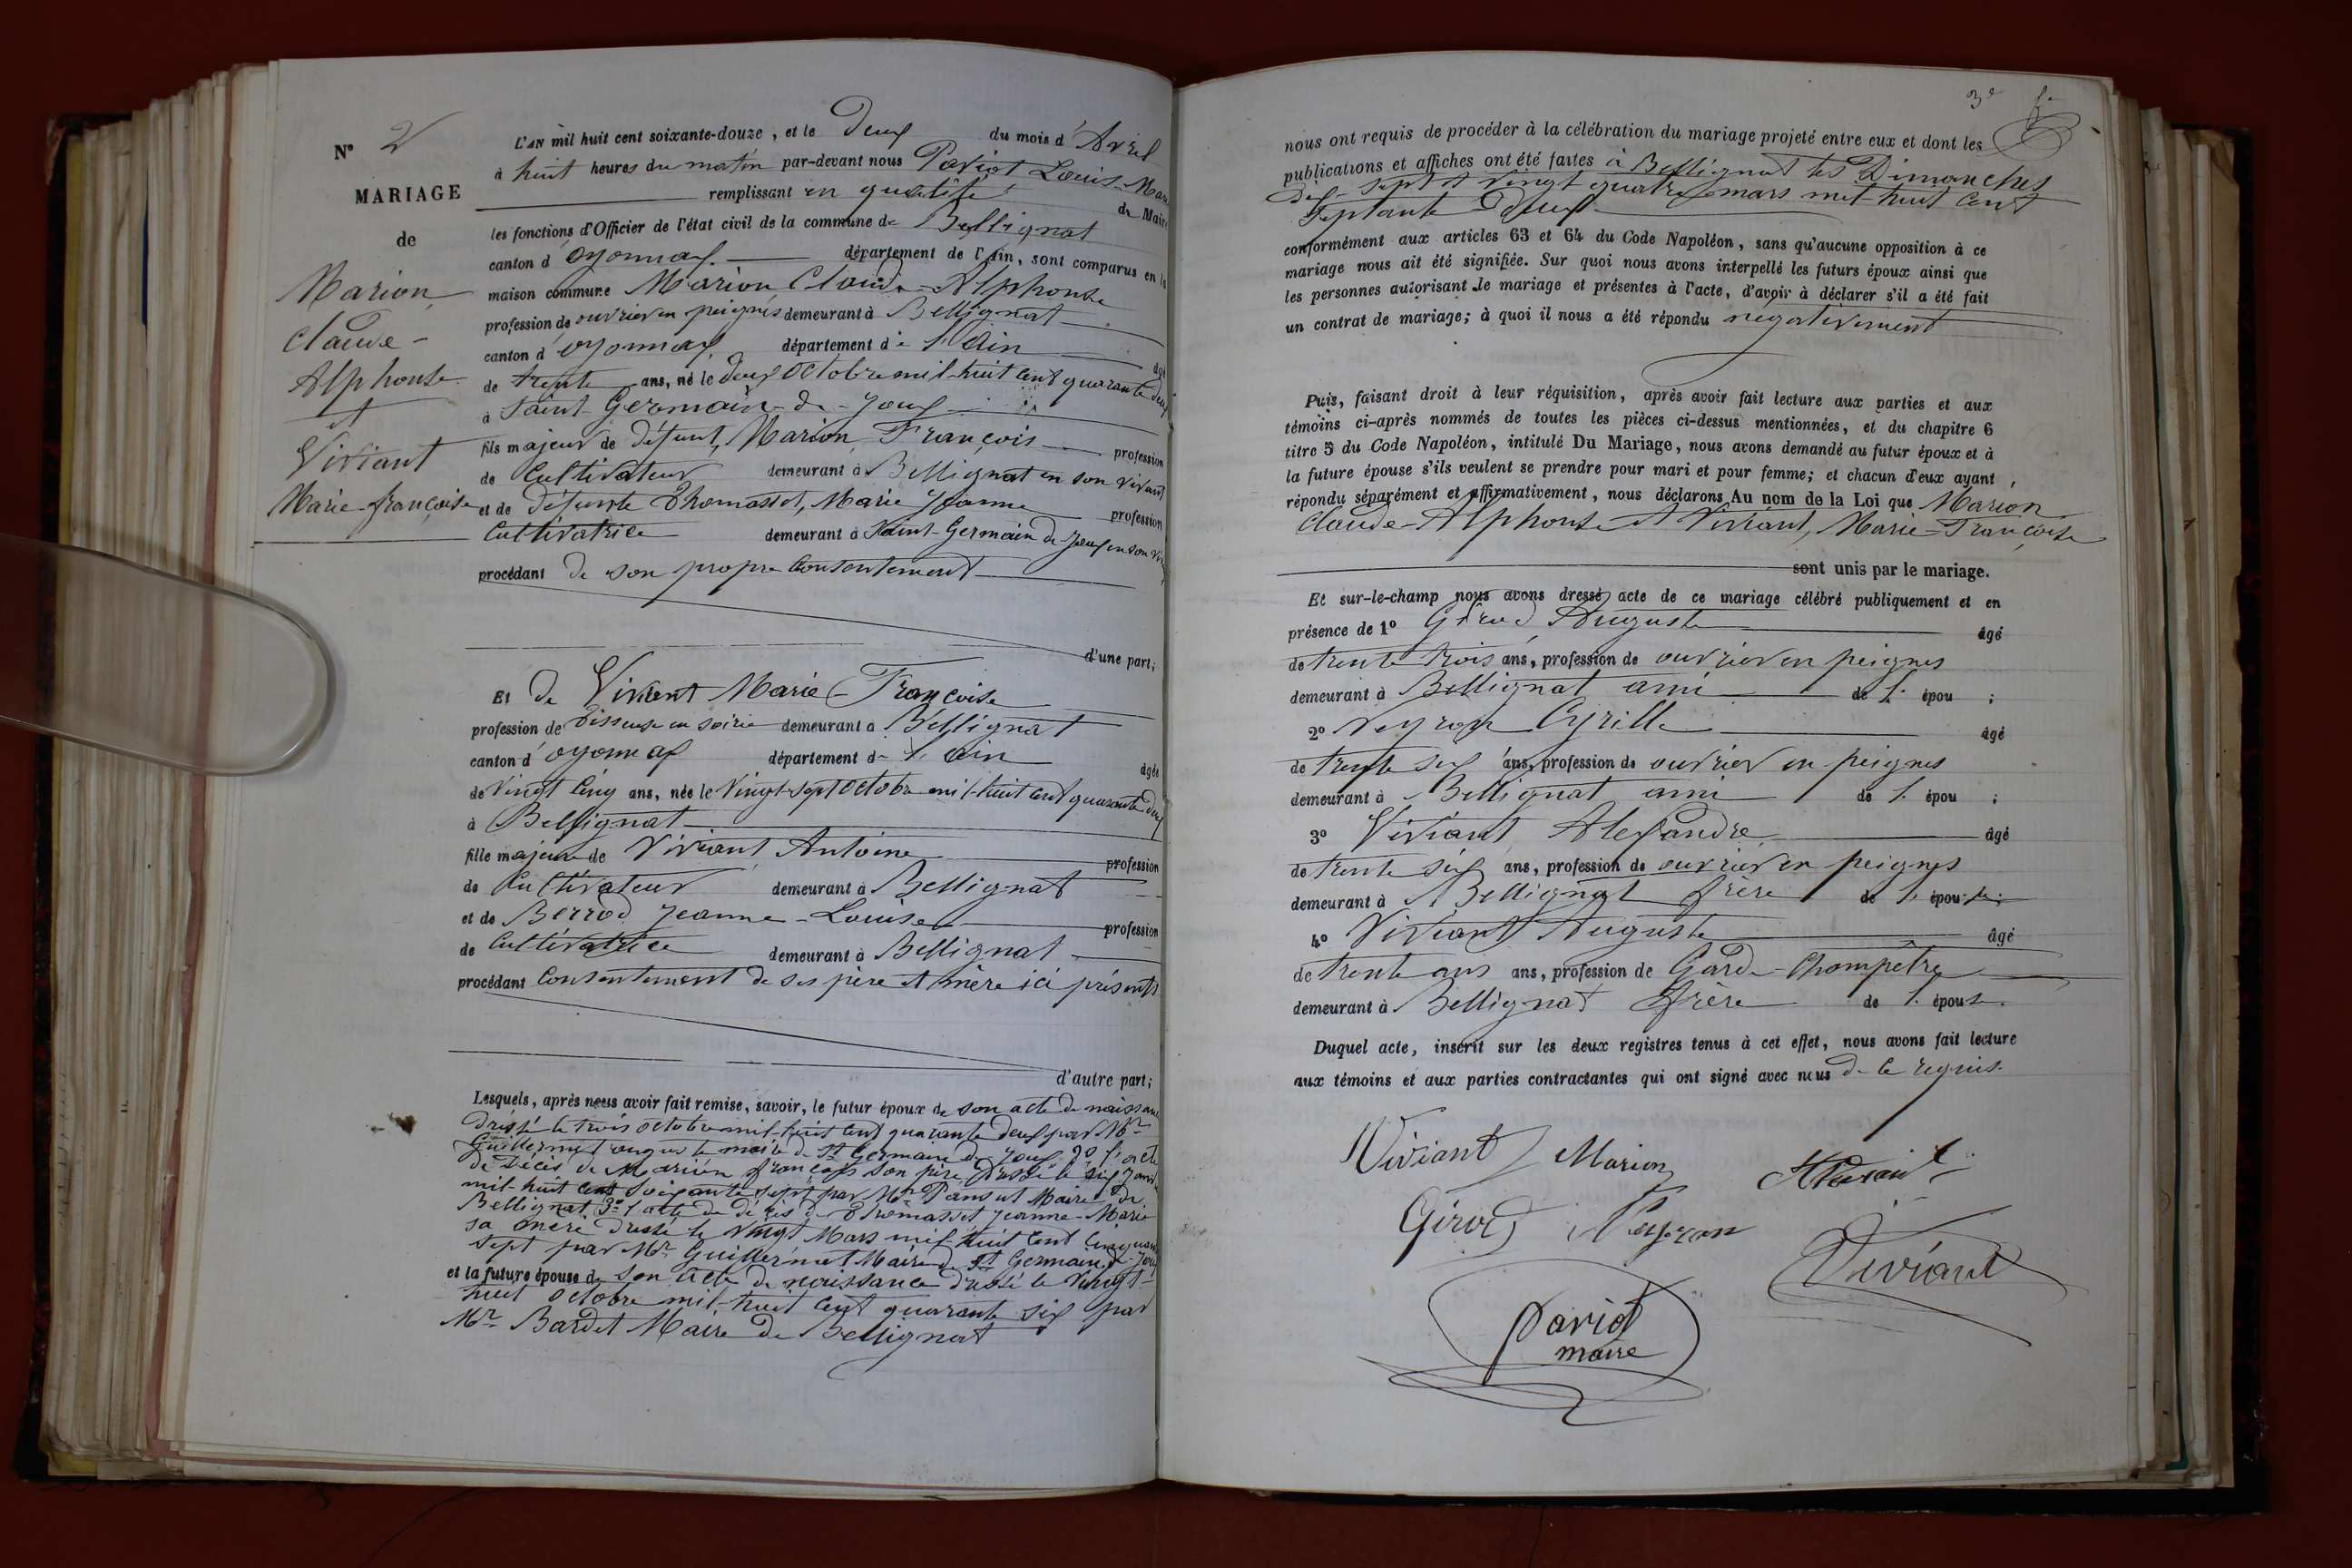 N° 2
MARIAGE
de
Marion
Claude-
Alphonse
et
Viviant
Marie-françoise
L'AN mil huit cent soixante-douze, et le Deux du mois d'Avril
à huit heures du matin par-devant nous Pariot Louis-Marie
remplissant en qualité de Maire
les fonctions d'Officier de l'état civil de la commune de Bellignat
canton d'oyonnax département de l'Ain, sont comparus en la
maison commune Marion, Claude-Alphonse
profession de ouvrier en peignes demeurant à Bellignat
canton d'oyonnax département de l'Ain âgé
de trente ans, né le deux octobre mil-huit cent quarante deux
à Saint-Germain-de-Joux
fils majeur de défunt, Marion, François profession
de Cultivateur demeurant à Bellignat en son vivant
et de défunte Thomasset, Marie Jeanne profession
Cultivatrice demeurant à Saint-Germain de-Joux en son viv
procédant de son propre Consentement
d'une part;
Et de Viviant Marie-Françoise
profession de Tisseuse en soirie demeurant à Bellignat
canton d'oyonnax département de l'ain âgée
de Vingt Cinq ans, née le Vingt-sept octobre mil-huit cent quarante deux
à Bellignat
fille majeure de Viviant, Antoine profession
de Cultivateur demeurant à Bellignat
et de Berrod Jeanne-Louise profession
de Cultivatrice demeurant à Bellignat
procédant Consentement de ses père et mère ici présents
d'autre part;
Lesquels, après nous avoir fait remise, savoir, le futur époux de son acte de naissance
dressé le trois octobre mil-huit cent quarante deux par Mr
Guillermet auguste maire de St Germain de Joux 2° l'acte
de décès de Marion françois son père dressé le six Janvier
mil-huit cent soixante sept par Mr Pansut Maire de
Bellignat 3° l'acte de décès de Thomasset Jeanne-Marie
sa mère dressé le Vingt Mars mil huit cent cinquante
sept par Mr Guillermet Maire de St Germain de Joux
et la future épouse de son acte de naissance dressé le Vingt-
huit octobre mil-huit cent quarante six par
Mr Bardet Maire de Bellignat
3e f.
nous ont requis de procéder à la célébration du mariage projeté entre eux et dont les
publications et affiches ont été faites à Bellignat les Dimanches
dix-sept et Vingt quatre mars mil-huit cent
septante Deux
conformément aux articles 63 et 64 du Code Napoléon, sans qu'aucune opposition à ce
mariage nous ait été signifiée. Sur quoi nous avons interpellé les futurs époux ainsi que
les personnes autorisant le mariage et présentes à l'acte, d'avoir à déclarer s'il a été fait
un contrat de mariage; à quoi il nous a été répondu négativement
Puis, faisant droit à leur réquisition, après avoir fait lecture aux parties et aux
témoins ci-après nommés de toutes les pièces ci-dessus mentionnées, et du chapitre 6
titre 5 du Code Napoléon, intitulé Du Mariage, nous avons demandé au futur époux et à
la future épouse s'ils veulent se prendre pour mari et pour femme; et chacun d'eux ayant
répondu séparément et affirmativement, nous déclarons Au nom de la Loi que Marion
Claude-Alphonse et Viviant, Marie-Françoise
sont unis par le mariage.
Et sur-le-champ nous avons dressé acte de ce mariage célébré publiquement et en
présence de 1° Girod Auguste âgé
de trente trois ans, profession de ouvrier en peignes
demeurant à Bellignat ami de l' épou ;
2° Neyron Cyrille âgé
de trente six ans, profession de ouvrier en peignes
demeurant à Bellignat ami de l' épou ;
3° Viviant Alexandre âgé
de trente six ans, profession de ouvrier en peignes
demeurant à Bellignat frère de l' épouse;
4° Viviant Auguste âgé
de trente ans ans, profession de Garde-Champêtre
demeurant à Bellignat frère de l' épouse.
Duquel acte, inscrit sur les deux registres tenus à cet effet, nous avons fait lecture
aux témoins et aux parties contractantes qui ont signé avec nous de ce requis.
Viviant Marion
Girod Neyron
Viviant
Pariot
maire